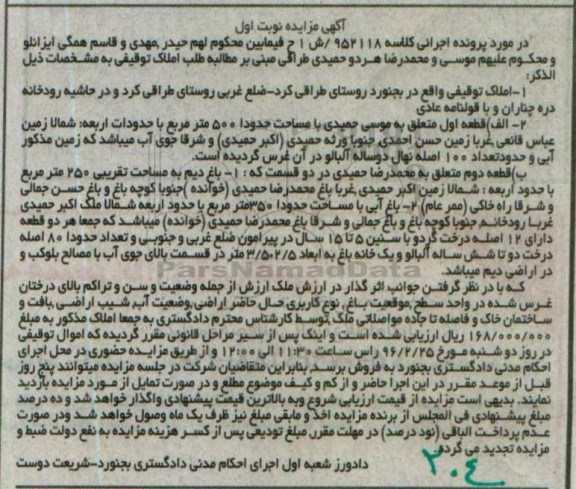 آگهی مزایده نوبت اول
در مورد پرونده اجرائی کلاسه ۹۵۲۱۱۸ /ش ۱ ح فیمابین محکوم لهم حیدر ,مهدی و قاسم همگی ایزانلو
و محکوم علیهم موسی و محمدرضا هردو حمیدی طراقی مبنی بر مطالبه طلب املاک توقیفی به مشخصات ذیل
الذکر:
۱-املاک توقیفی واقع در بجنورد روستای طراقی کرد-ضلع غربی روستای طراقی کرد و در حاشیه رودخانه
دره چناران و با قولنامه عادی
۲- الف)قطعه اول متعلق به موسی حمیدی با مساحت حدودا ۵۰۰ متر مربع با حدودات اربعه: شمالا زمین
عباس قانعی غربا زمین حسن احمدی جنوبا ورثه حمیدی (اکبر حمیدی) و شرقا جوی آب میباشد که زمین مذکور
آبی و حدودتعداد ۱۰۰ اصله نهال دوساله آلبالو در آن غرس گردیده است.
ب)قطعه دوم متعلق به محمدرضا حمیدی در دو قسمت که : ۱- باغ دیم به مساحت تقریبی ۲۵۰ متر مربع
با حدود اربعه : شمالا زمین اکبر حمیدی غربا باغ محمدرضا حمیدی (خوانده )جنوبا کوچه باغ و باغ حسن جمالی
و شرقا راه خاکی (ممر عام) ۲- باغ آبی با مساحت حدودا ۳۵۰متر مربع با حدود اربعه شمالا ملک اکبر حمیدی
غربا رودخانه جنوبا کوچه باغ و باغ جمالی و شرقا باغ محمدرضا حمیدی (خوانده) میباشد که جمعا هر دو قطعه
دارای ۱۲ اصله درخت گردو با سنین ۵ تا ۱۵ سال در پیرامون ضلع غربی و جنوبی و تعداد حدودا ۸۰ اصله
درخت دو تا شش ساله آلبالو و یک خانه باغ به ابعاد ۳/۵۰۲/۵ متر در قسمت بالای جوی آب با مصالح بلوکب و
در اراضی دیم میباشد.
که با در نظر گرفتن جوانب اثر گذار در ارزش ملک ارزش از جمله وضعیت و سن و تراکم بالای درختان
غرس شده در واحد سطح,موقعیت باغ, نوع کاربری حال حاضر اراضی,وضعیت آب, شیب اراضی ,بافت و
ساختمان خاک و فاصله تا جاده مواصلاتی ملک ,توسط کارشناس محترم دادگستری به جمعا املاک مذکور به مبلغ
۱۶۸/۰۰۰/۰۰۰ ریال ارزیابی شده است و اینک پس از سیر مراحل قانونی مقرر گردیده که اموال توقیفی
در روز دو شنبه مورخ ۹۶/۲/۲۵ راس ساعت ۱۱:۳۰ الی ۱۲:۰۰ و از طریق مزایده حضوری در محل اجرای
احکام مدنی دادگستری بجنورد به فروش برسد, بنابراین متقاضیان شرکت در جلسه مزایده میتوانند پنج روز
قبل از موعد مقرر در این اجرا حاضر و از کم و کیف موضوع مطلع و در صورت تمایل از مورد مزایده بازدید
نمایند. بدیهی است مزایده از قیمت ارزیابی شروع وبه بالاترین قیمت پیشنهادی واگذار خواهد شد و ده درصد
مبلغ پیشنهادی فی المجلس از برنده مزایده اخذ و مابقی مبلغ نیز ظرف یک ماه وصول خواهد شد ودر صورت
عدم پرداخت الباقی (نود درصد) در مهلت مقرر مبلغ تودیعی پس از کسر هزینه مزایده به نفع دولت ضبط و
مزایده تجدید می گردد.
دادورز شعبه اول اجرای احکام مدنی دادگستری بجنورد-شریعت دوست
ParsNamadData